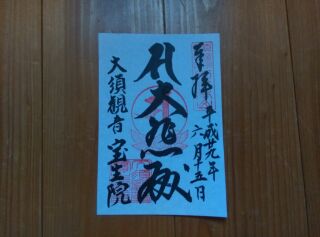 奉拝
平成廿九年
六月十五日
大悲殿
大須観音
宝生院